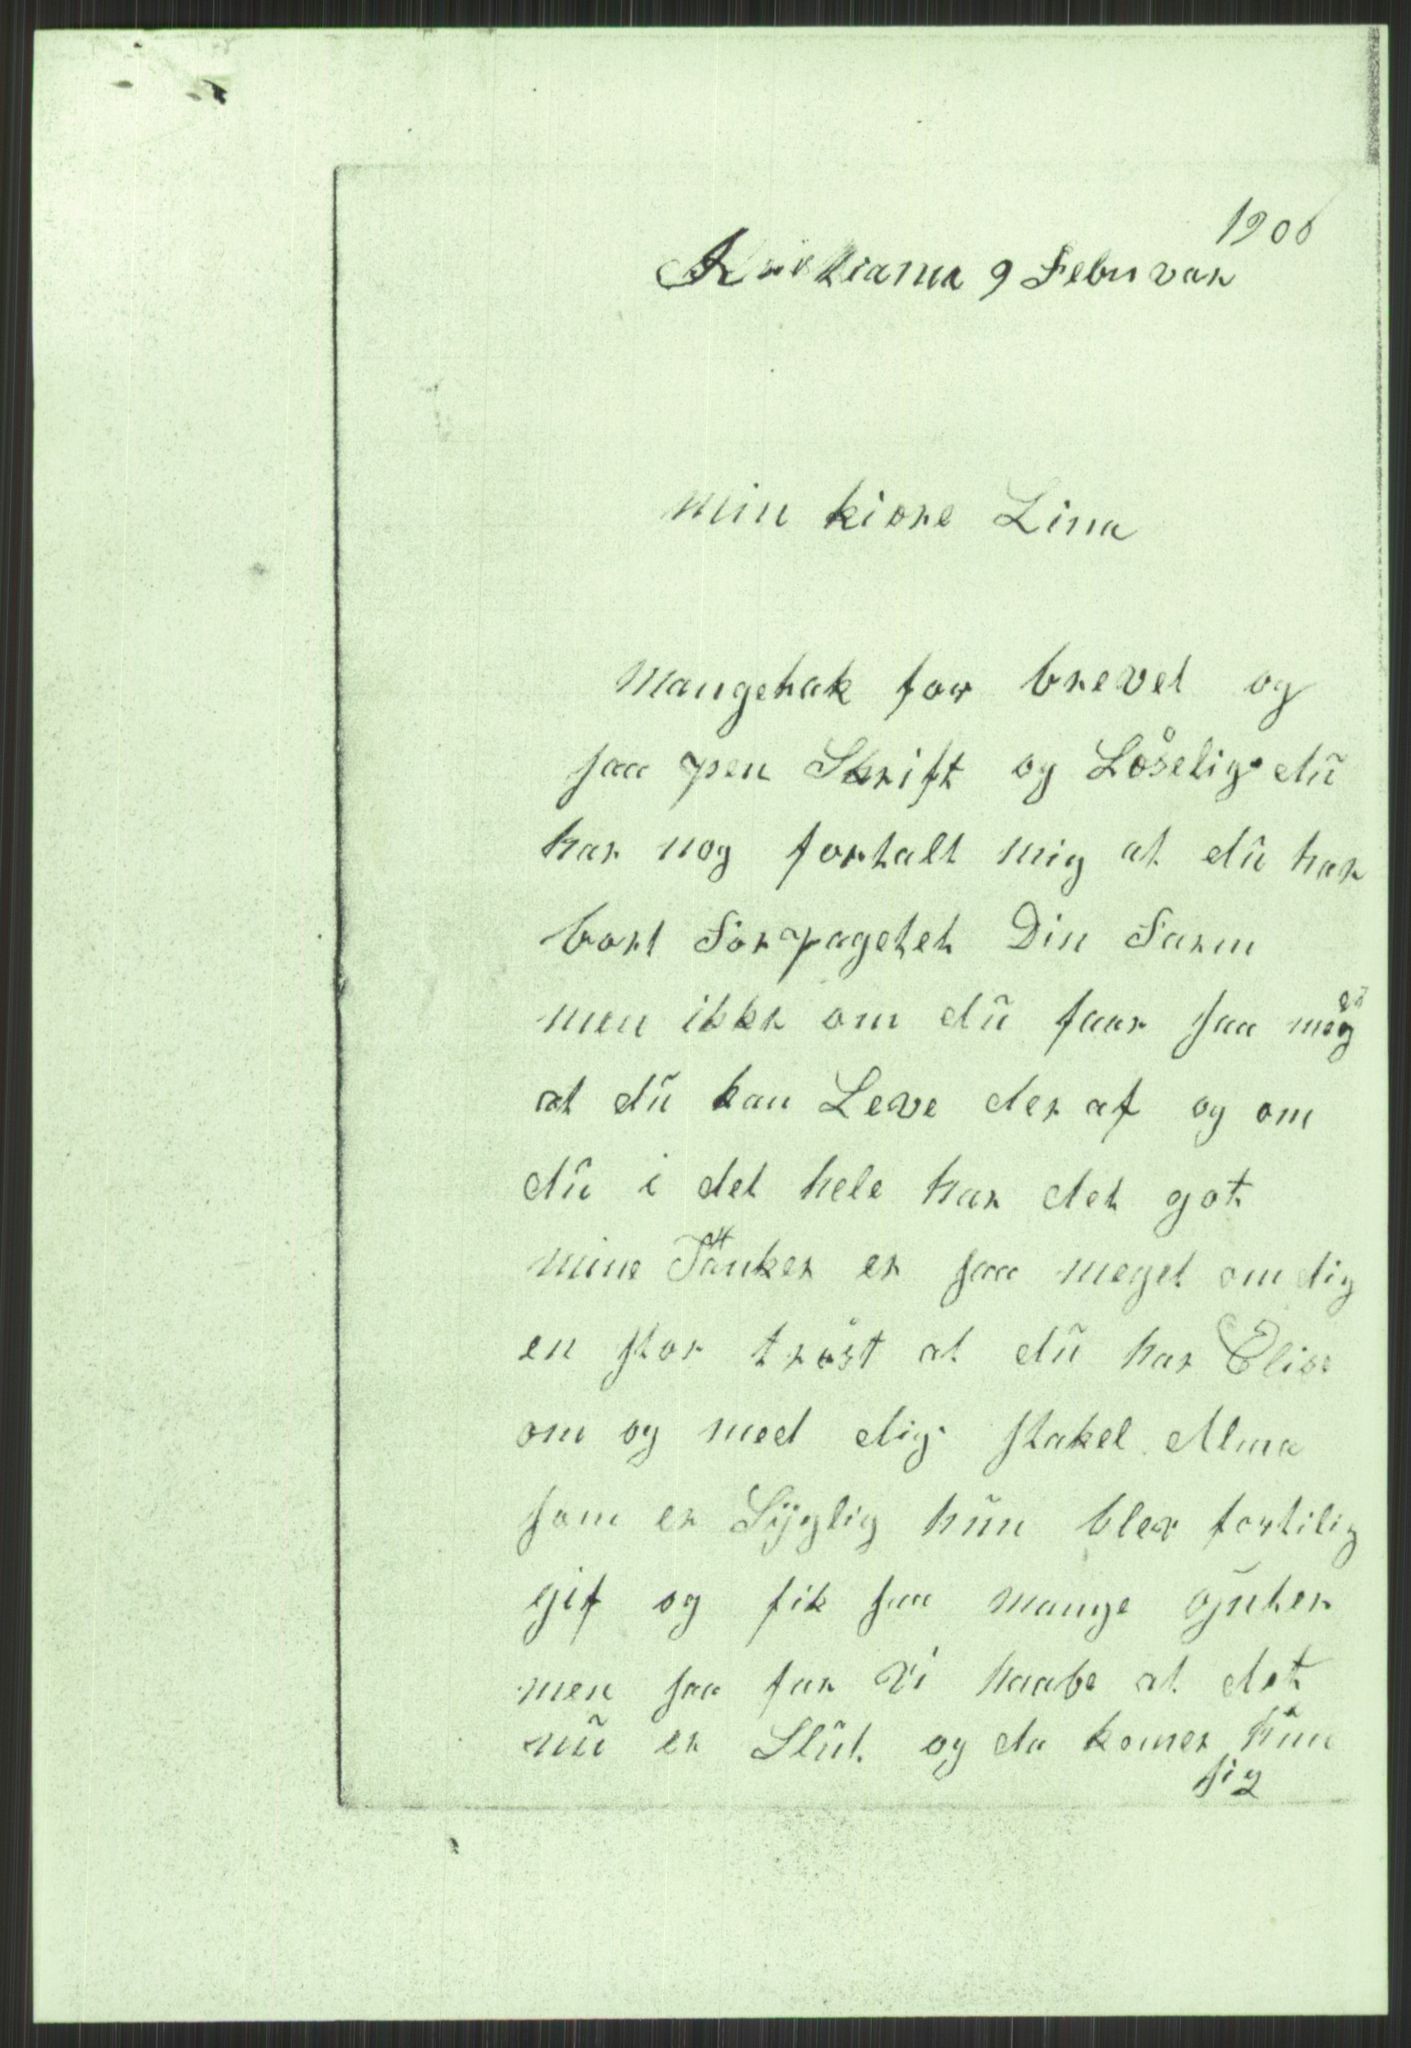 1906
Kristiania 9 Februvar
min kiøre Lina
Mangetak for brevet og
saa pen Skrift og Løselig du
har nog fortalt mig at du har
bort Forpagetet Din Farm
men ikke om du faar saa meg
et
at du kan Leve der af og om
du i det hele har det got
mine Tånker er saa meget om dig
en stor trøst at du har Elise
om og med dig. stakel Alma
som er Syglig hun blev fortilig
gif og fik saa mange
men saa far Vi haabe at det
nu er Slut. og da komer hun
sig